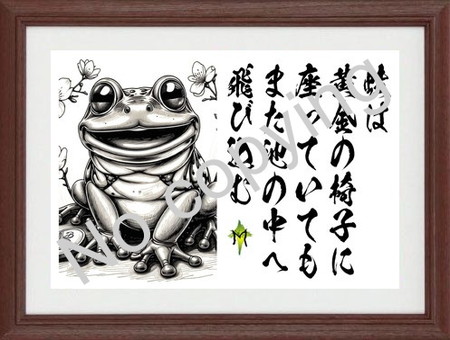 蛙は
黄金の椅子に
座っていても
また池の中へ
飛び込む
No copying